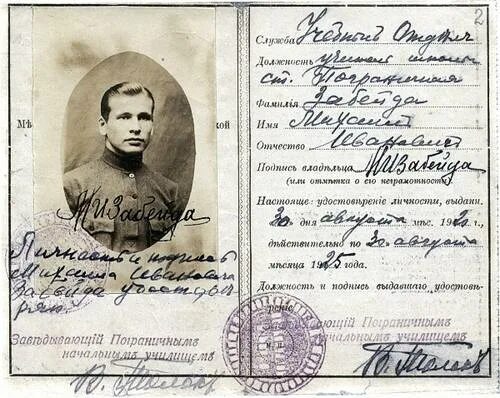 2
Служба Учебный Отдѣл
Должность ученик школы
ст. Пограничная
Фамилія Забейда
Имя Михаил
Отчество Иванович
Подпись владѣльца МИЗабейда
(или отмѣтка о его неграмотности)
Настоящее удостовѣреніе личности, выданн.
30 дня августа мѣс. 192 г.
дѣйствительно по 30 августа
мѣсяца 1925 года.
Должность и подпись выдавшаго удостовѣ-
реніе
Завѣдывающій Пограничнымъ
начальнымъ училищемъ
Мѣ
кой
МИЗабейда
Личность и подпись
Михаила Ивановича
Забейда удостов
ряю
Завѣдывающій Пограничнымъ
начальнымъ училищемъ